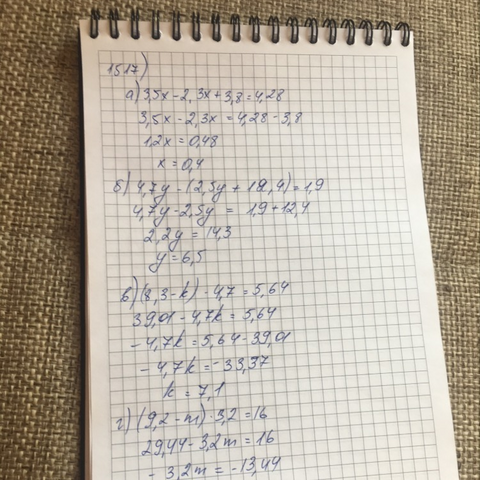 1517)
а) 3,5x - 2,3x + 3,8 = 4,28
3,5x - 2,3x = 4,28 - 3,8
1,2x = 0,48
x = 0,4
б) 4,7y - (2,5y + 12,4) = 1,9
4,7y - 2,5y = 1,9 + 12,4
2,2y = 14,3
y = 6,5
в) (8,3 - k) · 4,7 = 5,64
39,01 - 4,7k = 5,64
- 4,7k = 5,64 - 39,01
- 4,7k = -33,37
k = 7,1
г) (9,2 - m) · 3,2 = 16
29,44 - 3,2m = 16
- 3,2m = -13,44